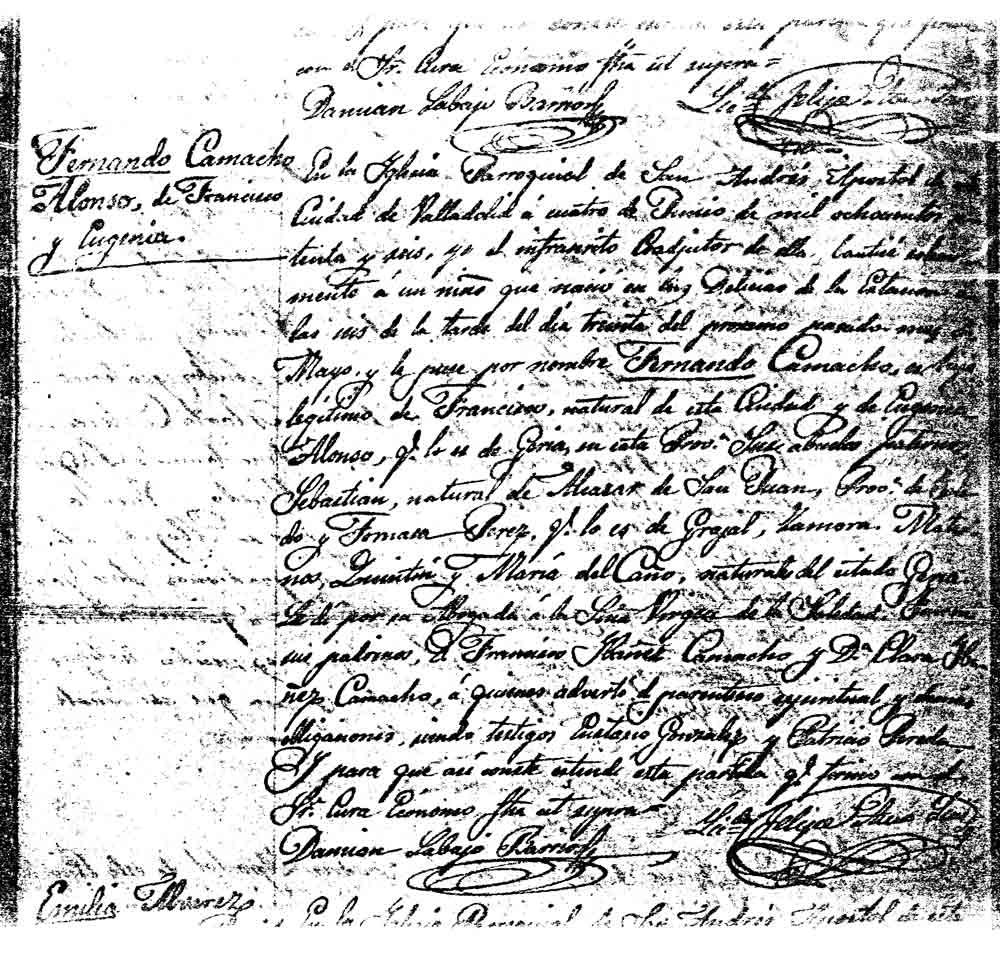 y para que así conste esta partida que firmo
con el Sr. Cura Ecónomo fha ut supra=
Damian Labajo Barrios Lic.do Felipe
Fernando Camacho
Alonso, de Francisco
y Eugenia.
En la Iglesia Parroquial de San Andrés Apostol de
Ciudad de Valladolid á cuatro de Junio de mil ochocientos
tenta y seis, yo el infrascrito Coadjutor de ella, bauticé
mente á un niño que nació en las Delicias de la Estacion
las seis de la tarde del dia treinta del próximo pasado mes
Mayo, y le puse por nombre Fernando Camacho, es hijo
legítimo de Francisco, natural de esta Ciudad y de Eugenia
Alonso, q.e lo es de Geria, en esta Prov.a Sus abuelos paternos
Sebastian, natural de Alcazar de San Juan, Prov.a de
do y Tomasa Perez, q.e lo es de Grajal, Zamora. Mater
nos, Quintin y María del Caño, naturales del citado Geria.
Le dí por su Abogada á la Sma Virgen de la Soledad. Fueron
sus padrinos, D. Francisco Ibañez Camacho y D.a Clara Ib
ñez Camacho, á quienes advertí el parentesco espiritual, y demas
obligaciones, siendo testigos Eustasio Gonzalez y Patricio Pereda
Y para que así conste estendí esta partida q.e firmo con el
Sr. Cura Ecónomo fha ut supra=
Damian Labajo Barrios Lic.do Felipe
Emilia Alvarez
En la Iglesia Parroquial de San Andrés Apostol de esta